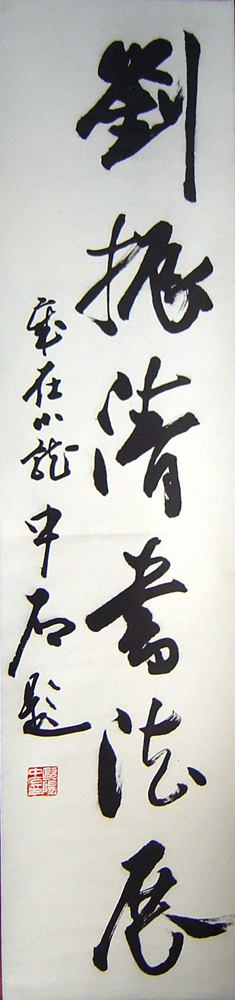 劉振清書法展
歲在小龍 中石題
歐陽中石